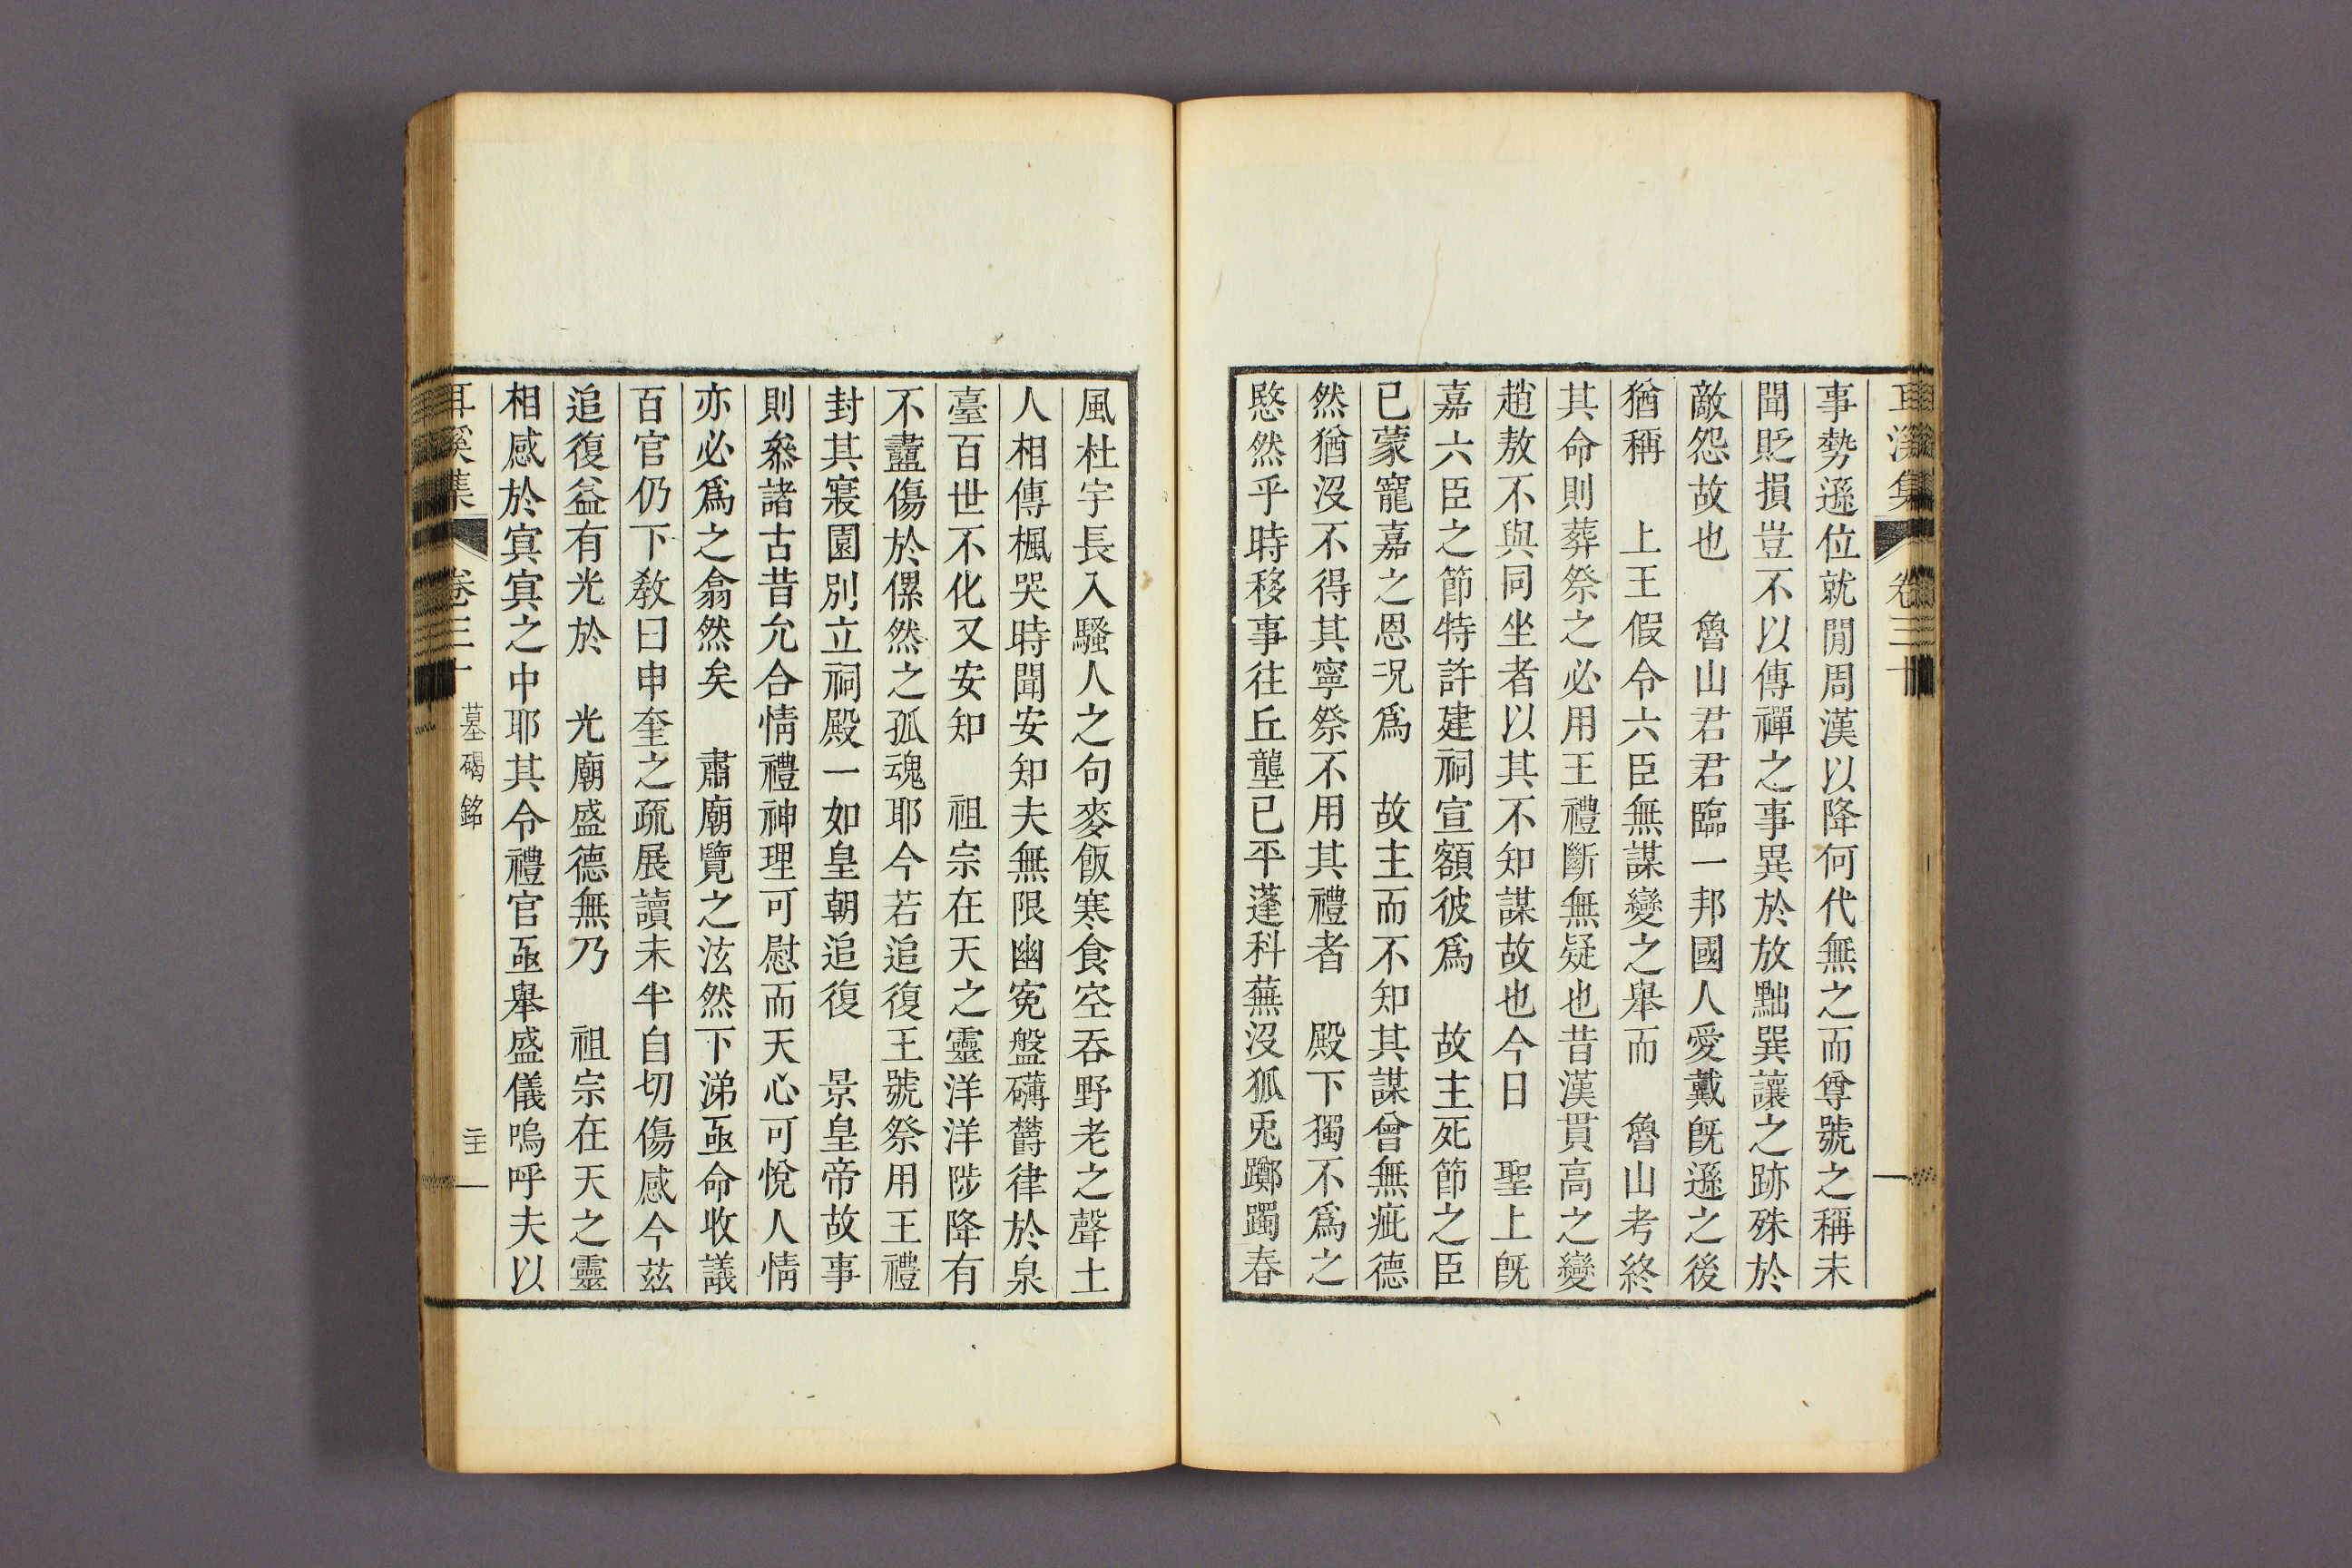 耳溪集 卷三十
事勢遜位就閒周漢以降何代無之而尊號之稱未
聞貶損豈不以傳禪之事異於放黜巽讓之跡殊於
敵怨故也 魯山君君臨一邦國人愛戴旣遜之後
猶稱 上王假令六臣無謀變之舉而 魯山考終
其命則葬祭之必用王禮斷無疑也昔漢貫高之變
趙敖不與同坐者以其不知謀故也今日 聖上旣
嘉六臣之節特許建祠宣額彼爲 故主死節之臣
已蒙寵嘉之恩况爲 故主而不知其謀曾無疵德
然猶沒不得其寧祭不用其禮者 殿下獨不爲之
愍然乎時移事往丘壟已平蓬科蕪沒狐兎躑躅春
風杜宇長入騷人之句麥飯寒食空吞野老之聲土
人相傳楓哭時聞安知夫無限幽寃盤礴欝律於泉
臺百世不化又安知 祖宗在天之靈洋洋陟降有
不盡傷於傫然之孤魂耶今若追復王號祭用王禮
封其寢園別立祠殿一如皇朝追復 景皇帝故事
則叅諸古昔允合情禮神理可慰而天心可悅人情
亦必爲之翕然矣 肅廟覽之泫然下涕亟命收議
百官仍下教曰申奎之疏展讀未半自切傷感今茲
追復益有光於 光廟盛德無乃 祖宗在天之靈
相感於㝠㝠之中耶其令禮官亟舉盛儀嗚呼夫以
耳溪集 卷三十 墓碣銘